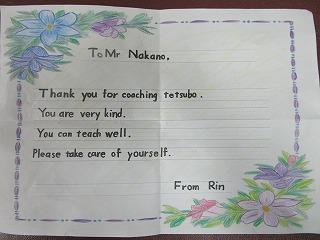 To Mr Nakano.
Thank you for coaching tetsubo.
You are very kind.
You can teach well.
Please take care of yourself.
From Rin